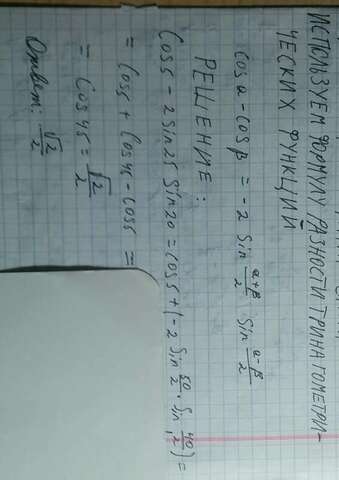 ИСПОЛЬЗУЕМ ФОРМУЛУ РАЗНОСТИ ТРИНАГОМЕТРИ-
ЧЕСКИХ ФУНКЦИЙ
cos α - cos β = -2 sin (α+β)/2 · sin (α-β)/2
РЕШЕНИЕ:
Cos5 - 2 sin25 sin20 = cos5 + (-2 sin 50/2 · sin 40/2) =
= Cos5 + Cos45 - Cos5 =
= Cos45 = √2/2
Ответ: √2/2